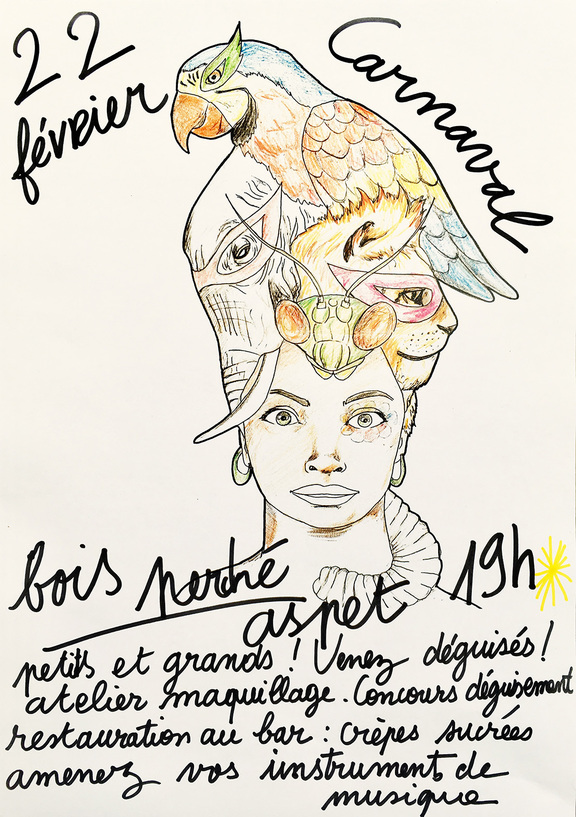 22
février
Carnaval
bois perché
aspet
19h
petits et grands ! Venez déguisés !
atelier maquillage. Concours déguisement
restauration au bar : crèpes sucrées
amenez vos instruments de
musique